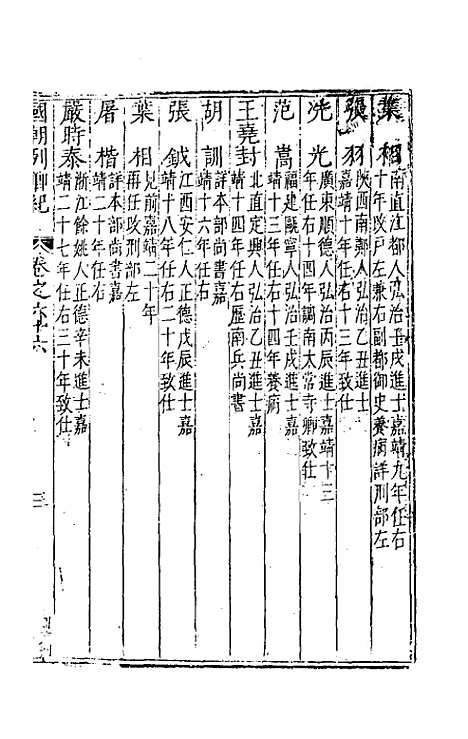 葉相南直江都人弘治壬戌進士嘉靖九年任右
十年改戶左兼右副都御史養病詳刑部左
張羽陜西南鄭人弘治乙丑進士
嘉靖十年任右十三年致仕
冼光廣東順德人弘治丙辰進士嘉靖十三
年任右十四年調南太常寺卿致仕
范嵩福建甌寧人弘治壬戌進士嘉
靖十三年任右十四年養病
王堯封北直定興人弘治乙丑進士嘉
靖十四年任右歷南兵尚書
胡訓詳本部尚書嘉
靖十六年任右
張鉞江西安仁人正德戊辰進士嘉
靖十八年任右二十年致仕
葉相兄前嘉靖二十年
再任改刑部左
屠楷詳本部尚書嘉
靖二十年任右
嚴時泰浙江餘姚人正德辛未進士嘉
靖二十七年任右三十年致仕
國朝列卿紀 卷之六十六 三